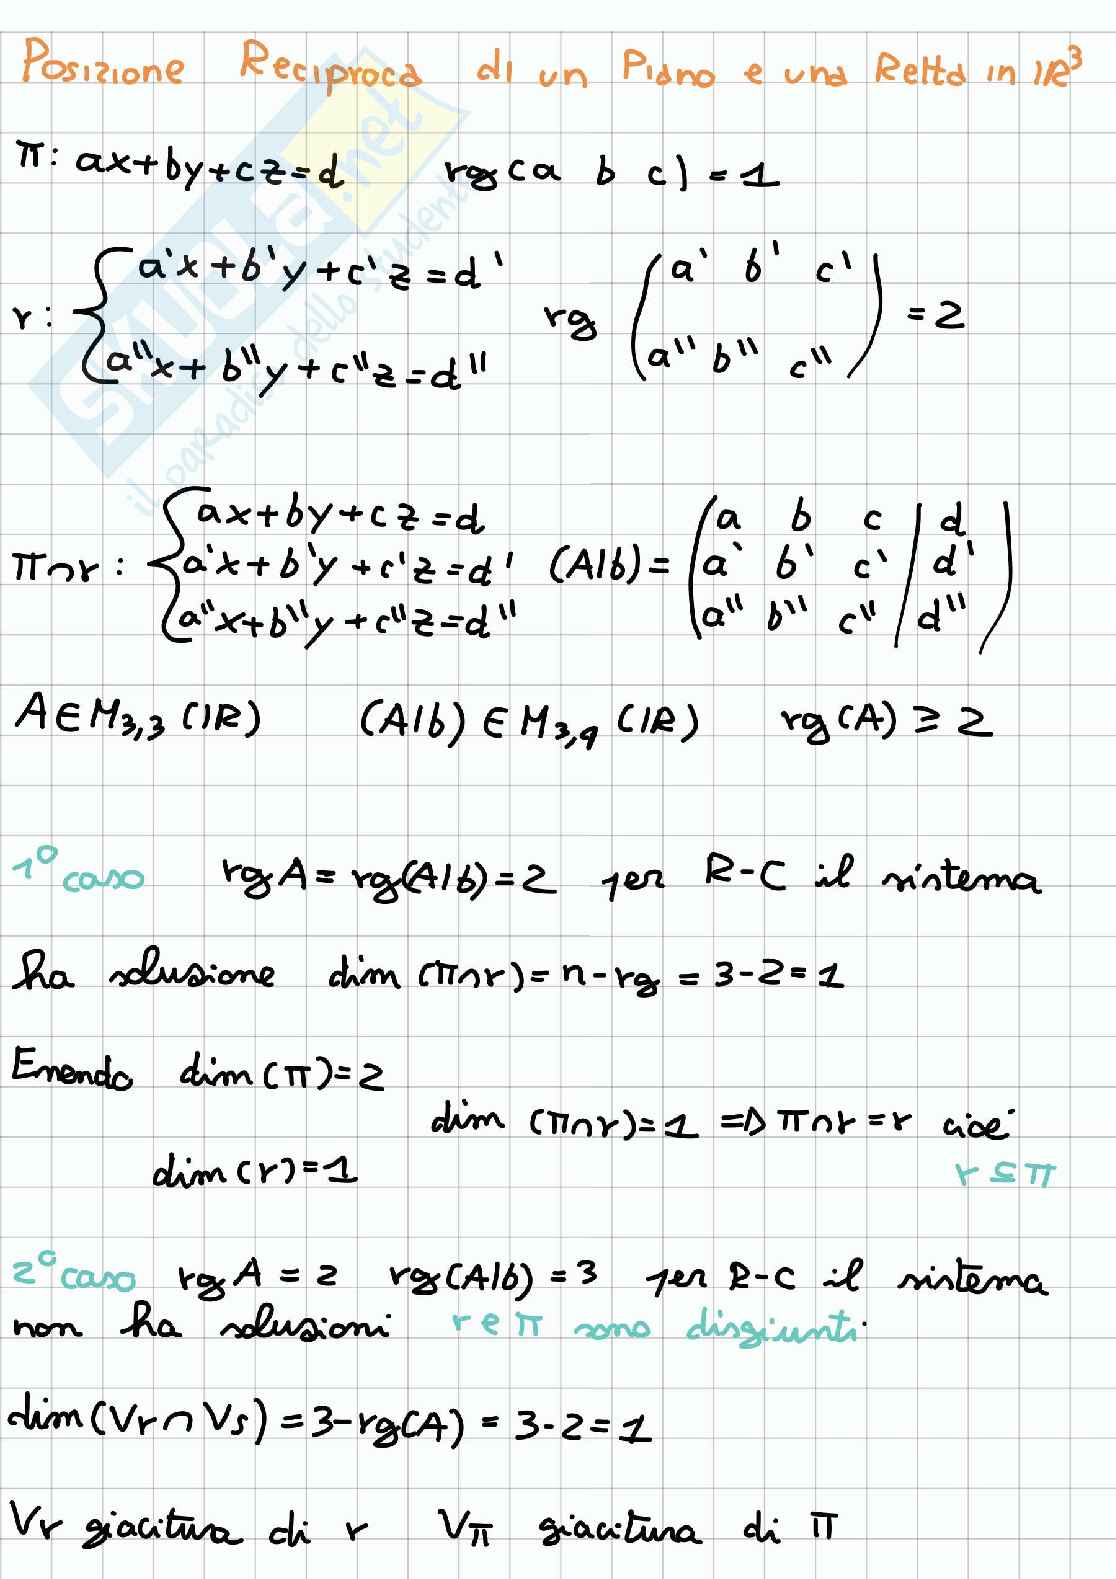 Posizione Reciproca di un Piano e una Retta in IR³
π: ax+by+cz=d rg(a b c)=1
r: { a'x+b'y+c'z=d' rg (a' b' c'
a''x+b''y+c''z=d'' a'' b'' c'') =2
π∩r: { ax+by+cz=d (A|b)= (a b c | d
a'x+b'y+c'z=d' a' b' c' | d'
a''x+b''y+c''z=d'' a'' b'' c'' | d'')
A∈M3,3(IR) (A|b)∈M3,4(IR) rg(A)≥2
1° caso rgA=rg(A|b)=2 per R-C il sistema
ha soluzione dim(π∩r)=n-rg=3-2=1
Essendo dim(π)=2
dim(π∩r)=1 => π∩r=r cioè
dim(r)=1
r⊆π
2° caso rgA=2 rg(A|b)=3 per R-C il sistema
non ha soluzioni r e π sono disgiunti.
dim(Vr∩Vs)=3-rg(A)=3-2=1
Vr giacitura di r Vπ giacitura di π
SKUOLA.net
il paradiso dello studente